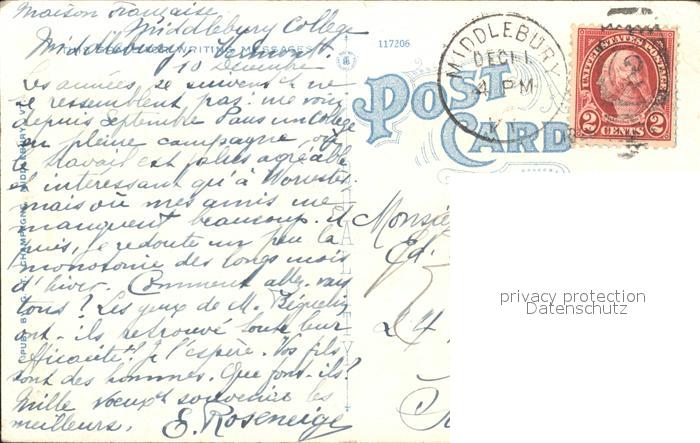 Maison Française
Middlebury College
Middlebury, Vermont.
WRITING MESSAGES
10 décembre
Les années se suivent et ne
se ressemblent pas: me voici
depuis septembre dans un collège
en pleine campagne, où
le travail est plus agréable
et intéressant qu'à Worcester
mais où mes amis me
manquent beaucoup. Et
puis, je redoute un peu la
monotonie des longs mois
d'hiver. Comment allez-vous
tous? Les yeux de M.
ont-ils retrouvé toute leur
efficacité? Je l'espère. Vos fils
sont des hommes. Que font-ils?
Mille vœux et souvenirs les
meilleurs. E. Roseneige
117206
POST
CARD
MIDDLEBURY
DEC 11
4 PM
VT.
UNITED STATES POSTAGE
2 CENTS 2
Monsie
Ed.
24
privacy protection
Datenschutz